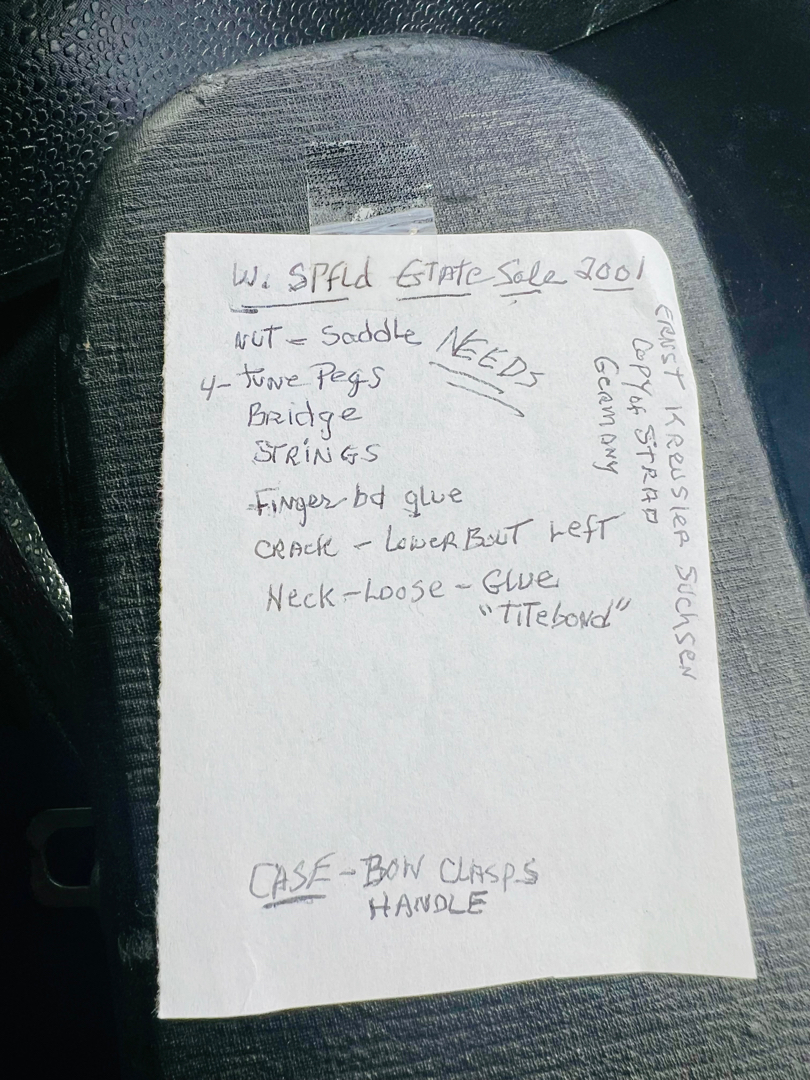 W. SPfld EstAte Sale 2001
NUT - Saddle NEEDS
4- Tune Pegs
Bridge
STRINGS
Finger bd glue
CRACK - Lower Bout Left
Neck - Loose - Glue
"TiTebond"
CASE - BOW CLASPS
HANDLE
ERNST KREUSLER SUCHSEN
Copy of STRAD
Germany